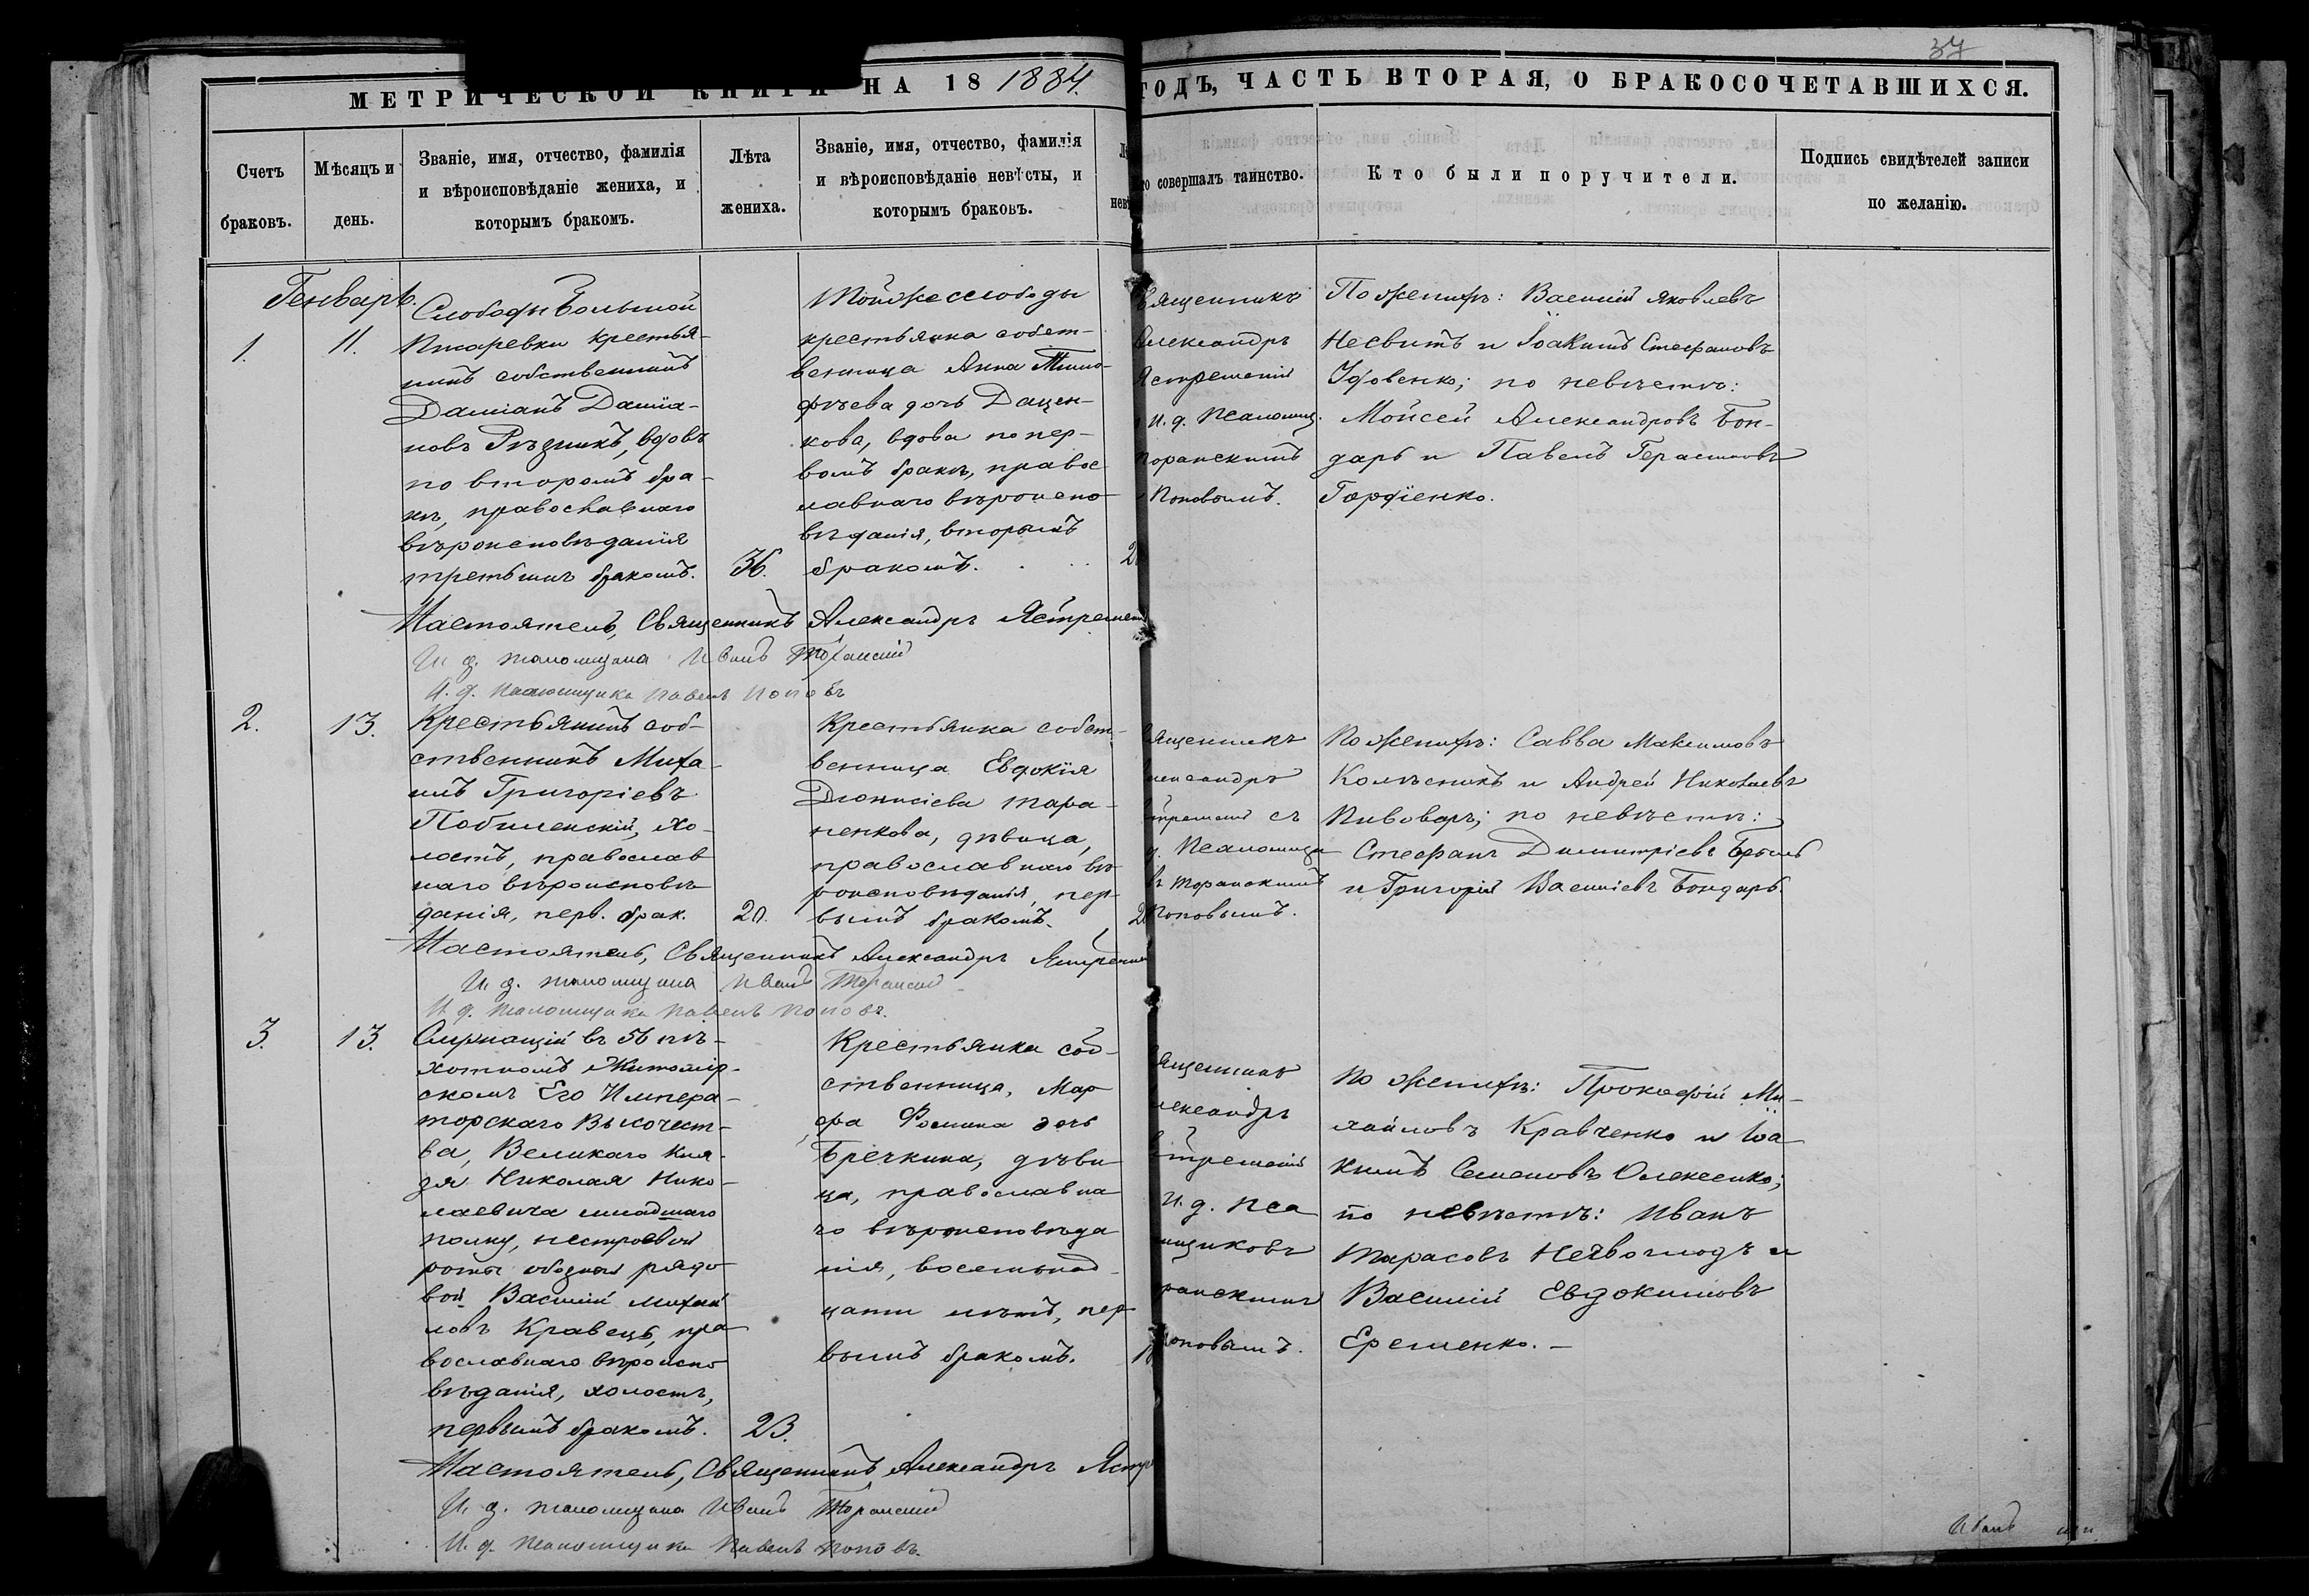 37
МЕТРИЧЕСКОЙ КНИГИ НА 18 1884.
ГОДЪ, ЧАСТЬ ВТОРАЯ, О БРАКОСОЧЕТАВШИХСЯ.
Счетъ
браковъ.
Мѣсяцъ и
день.
Званіе, имя, отчество, фамилія
и вѣроисповѣданіе жениха, и
которымъ бракомъ.
Лѣта
жениха.
Званіе, имя, отчество, фамилія
и вѣроисповѣданіе невѣсты, и
которымъ браковъ.
совершалъ таинство.
Кто были поручители.
Подпись свидѣтелей записи
по желанію.
Генварь.
1.
11.
Слободы Большой
Писаревки крестья-
нинъ собственникъ
Даміанъ Даміа-
новъ Рѣзникъ, вдовъ
по второмъ бра-
кѣ, православнаго
вѣроисповѣданія
третьимъ бракомъ.
36.
Той же слободы
крестьянка собст-
венница Анна Тимо-
фѣева дочь Дацен-
кова, вдова по пер-
вомъ бракѣ, правос-
лавнаго вѣроиспо-
вѣданія, вторымъ
бракомъ.
Священникъ
Александръ
Ястремскій
и. д. псаломщ.
Торанскимъ
Поповымъ.
По женихѣ: Василій Яковлевъ
Несвитъ и Іоакимъ Стефановъ
Удовенко; по невѣстѣ:
Моисей Александровъ Бон-
дарь и Павелъ Герасимовъ
Гордіенко.
Настоятель, Священникъ Александръ
И. д. псаломщика Иванъ Торанскій
И. д. псаломщика Павелъ Поповъ
2.
13.
Крестьянинъ соб-
ственникъ Миха-
илъ Григоріевъ
хо-
лостъ, православ
наго вѣроисповѣ
данія, перв. брак.
20.
Крестьянка собст-
венница Евдокія
Діонисіева Тара-
ненкова, дѣвица,
православнаго вѣ-
роисповѣданія, пер-
вымъ бракомъ.
съ
Псаломщ
Торанскимъ
Поповымъ.
По женихѣ: Савва Максимовъ
Колѣсникъ и Андрей Николаевъ
Пивоваръ; по невѣстѣ:
Стефанъ Димитріевъ
и Григорій Василіевъ Бондарь.
Настоятель, Священникъ Александръ
И. д. псаломщика Иванъ Торанскій
И. д. псаломщика Павелъ Поповъ.
3.
13.
Служащій въ 56 пѣ-
хотномъ Житомір-
скомъ Его Импера-
торскаго Высочест-
ва, Великаго Кня-
зя Николая Нико-
лаевича младшаго
полку, нестроевой
роты обозный рядо-
вой Василій Михаи
ловъ Кравецъ, пра
вославнаго вѣроиспо
вѣданія, холостъ,
первымъ бракомъ.
23.
Крестьянка соб-
ственница, Мар
фа Фомина дочь
Бречкина, дѣви
ца, православна
го вѣроисповѣда
нія, восемьнад-
цати лѣтъ, пер
вымъ бракомъ.
и. д. пса
Поповымъ.
По женихѣ: Прокофій Ми-
хаиловъ Кравченко и Іоа-
кимъ Семеновъ Олексенко;
по невѣстѣ: Иванъ
Тарасовъ и
Василій Евдокимовъ
Еременко.
Настоятель, Священникъ Александръ
И. д. псаломщика Иванъ Торанскій
И. д. псаломщика Павелъ Поповъ.
Иванъ